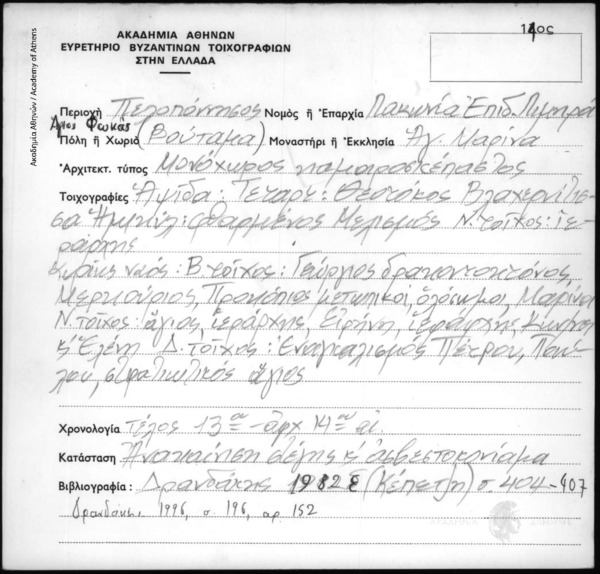 14ος
ΑΚΑΔΗΜΙΑ ΑΘΗΝΩΝ
ΕΥΡΕΤΗΡΙΟ ΒΥΖΑΝΤΙΝΩΝ ΤΟΙΧΟΓΡΑΦΙΩΝ
ΣΤΗΝ ΕΛΛΑΔΑ
Ακαδημία Αθηνών / Academy of Athens
Περιοχή Πελοπόννησος Νομός ἤ Ἐπαρχία Λακωνία Ἐπιδ. Λιμηρά
Άγιος Φωκάς
Πόλη ἤ Χωριό (Βούταμα) Μοναστήρι ἤ Ἐκκλησία Ἁγ. Μαρίνα
Ἀρχιτεκτ. τύπος Μονόχωρος καμαροσκέπαστος
Τοιχογραφίες Ἁψίδα: Τεταρτ: Θεοτόκος Βλαχερνίτισ-
σα Ἡμικύλ: φθαρμένος Μελισμός Ν. τοῖχος: ἱε-
ράρχης
Κυρίως ναός: Β. τοῖχος: Γεώργιος δρακοντοκτόνος,
Μερκούριος, Προκόπιος μετωπικοί, ὁλόσωμοι, Μαρίνα
Ν. τοῖχος: ἅγιος, ἱεράρχης, Εἰρήνη, ἱεράρχης, Κων/νος
κ' Ἑλένη Δ. τοῖχος: Ἐναγκαλισμός Πέτρου, Παύ-
λου, στρατιωτικός ἅγιος
Χρονολογία τέλος 13ου - ἀρχ 14ου αἰ.
Κατάσταση Ἀνακαίνιση στέγης κ' ἀσβεστοκονίαμα
Βιβλιογραφία: Δρανδάκης 1982 (Κέπετζη) σ. 404-407
Δρανδάκης, 1996, σ. 196, αρ. 152